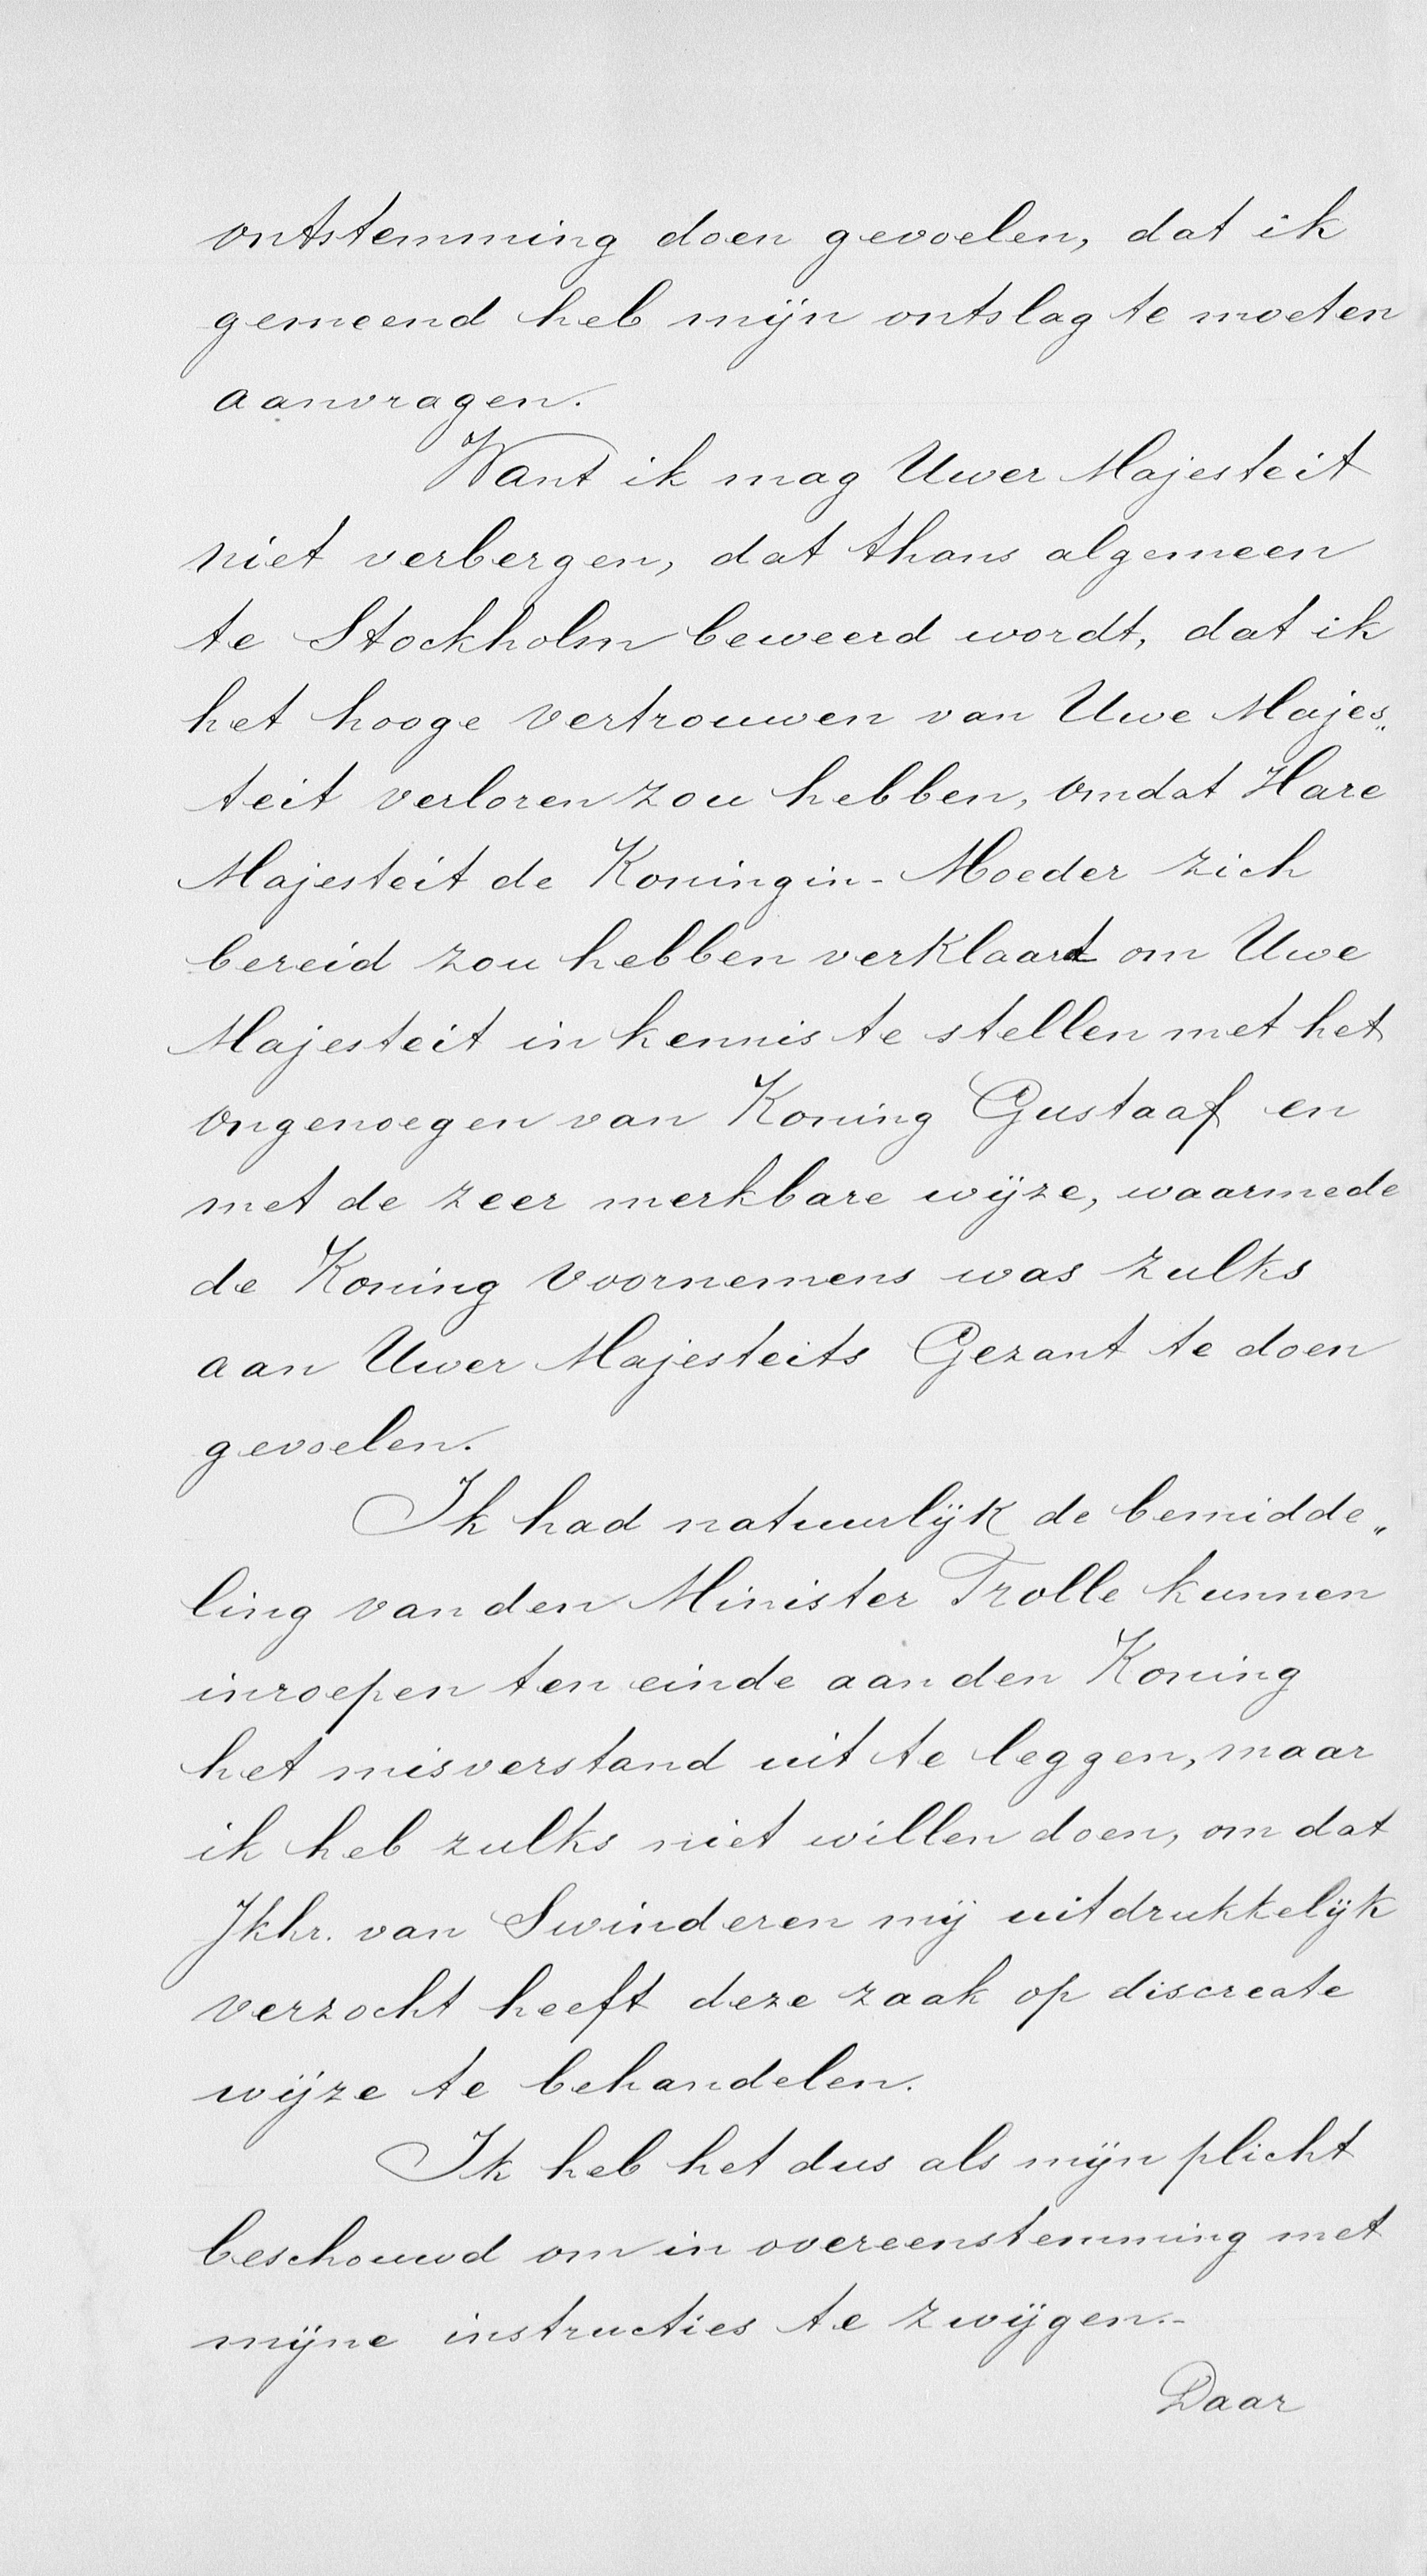 ontstemming doen gevoelen, dat ik
gemeend heb mijn ontslag te moeten
aanvragen.
Want ik mag Uwer Majesteit
niet verbergen, dat thans algemeen
te Stockholm beweerd wordt, dat ik
het hooge vertrouwen van Uwe Majes„
teit verloren zou hebben, omdat Hare
Majesteit de Koningin-Moeder zich
bereid zou hebben verklaard om Uwe
Majesteit in kennis te stellen met het
ongenoegen van Koning Gustaaf en
met de zeer merkbare wijze, waarmede
de Koning voornemens was zulks
aan Uwer Majesteits Gezant te doen
gevoelen.
Ik had natuurlijk de bemidde„
ling van den Minister Trolle kunnen
inroepen ten einde aan den Koning
het misverstand uit te leggen, maar
ik heb zulks niet willen doen, omdat
Jkhr. van Swinderen mij uitdrukkelijk
verzocht heeft deze zaak op discreate
wijze te behandelen.
Ik heb het dus als mijn plicht
beschouwd om in overeenstemming met
mijne instructies te zwijgen.-
Daar